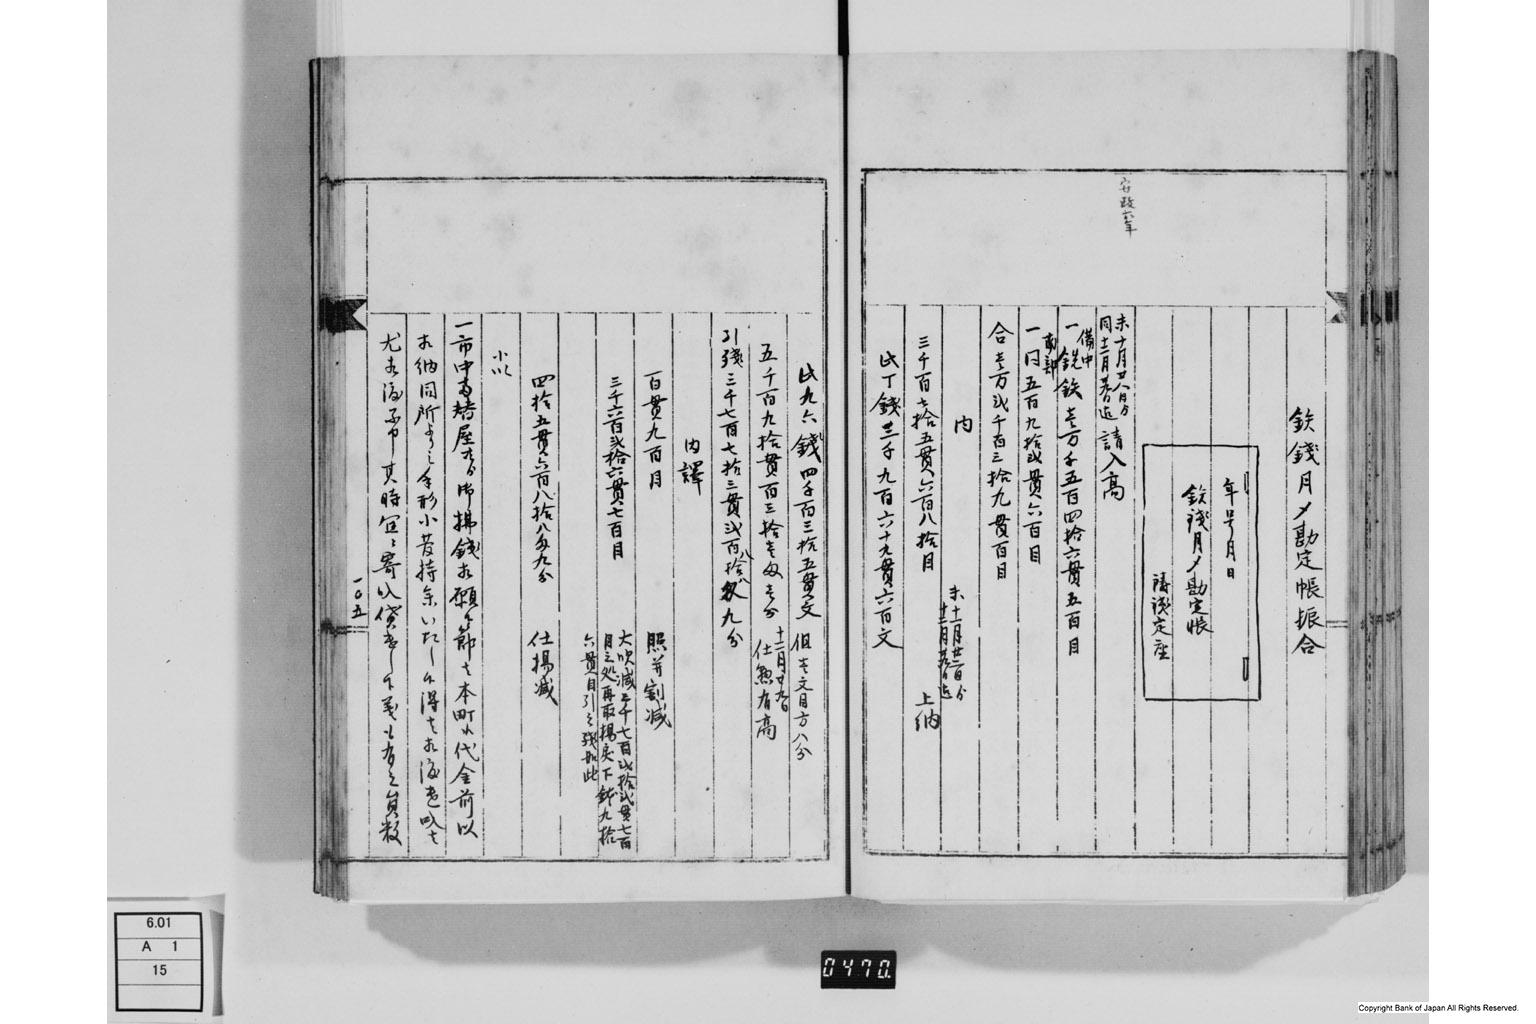 安政六年
鉄錢月〆勘定帳振合
年号月日
鉄錢月〆勘定帳
鑄錢定座
未十月廿八日分
同十二月迄 請入高
備中
一銑鉄壱万千五百四拾六貫五百目
南部
一同五百九拾弐貫六百目
合壱万弐千百三拾九貫百目
内
未十一月廿二日分
上納
三千百七拾五貫六百八拾目
此丁錢三千九百六十九貫六百文
此九六錢四千百三拾五貫文 但壱文目方八分
五千百九拾貫百三拾壱匁壱分 十二月廿九日 有高
引残三千七百七拾三貫弐百八拾八匁九分
内譯
百貫九百目 割減
三千六百弐拾六貫七百目 大吹減三千七百弐拾弐貫七百目之処再取揚戻下鉄九拾六貫目引之残如此
四拾五貫六百八拾八匁九分 仕揚減
一市中両替屋共 御拂錢相願候節は本町代金前以
相納同所之手形小者持参いたし候得は相渡
尤相渡 其時宜寄 貸渡 員数
一〇五
6.01
A 1
15
0470.
Copyright Bank of Japan All Rights Reserved.